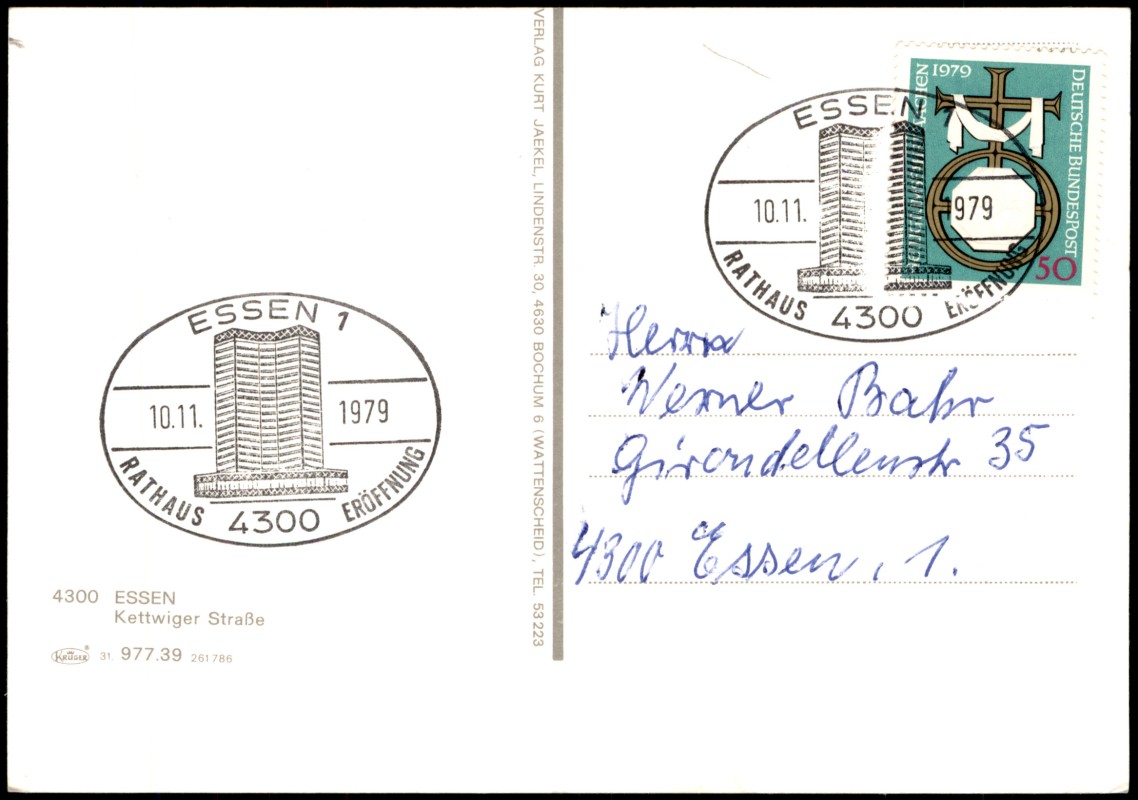 VERLAG KURT JAEKEL, LINDENSTR. 30, 4630 BOCHUM 6 (WATTENSCHEID), TEL. 53 223
ESSEN 1
10.11. 1979
RATHAUS 4300 ERÖFFNUNG
4300 ESSEN
Kettwiger Straße
KRÜGER 31. 977.39 261786
1979
DEUTSCHE BUNDESPOST
50
ESSEN 1
10.11. 979
RATHAUS 4300 ERÖFFNUNG
Herrn
Werner Bahr
Girondellenstr 35
4300 Essen, 1.